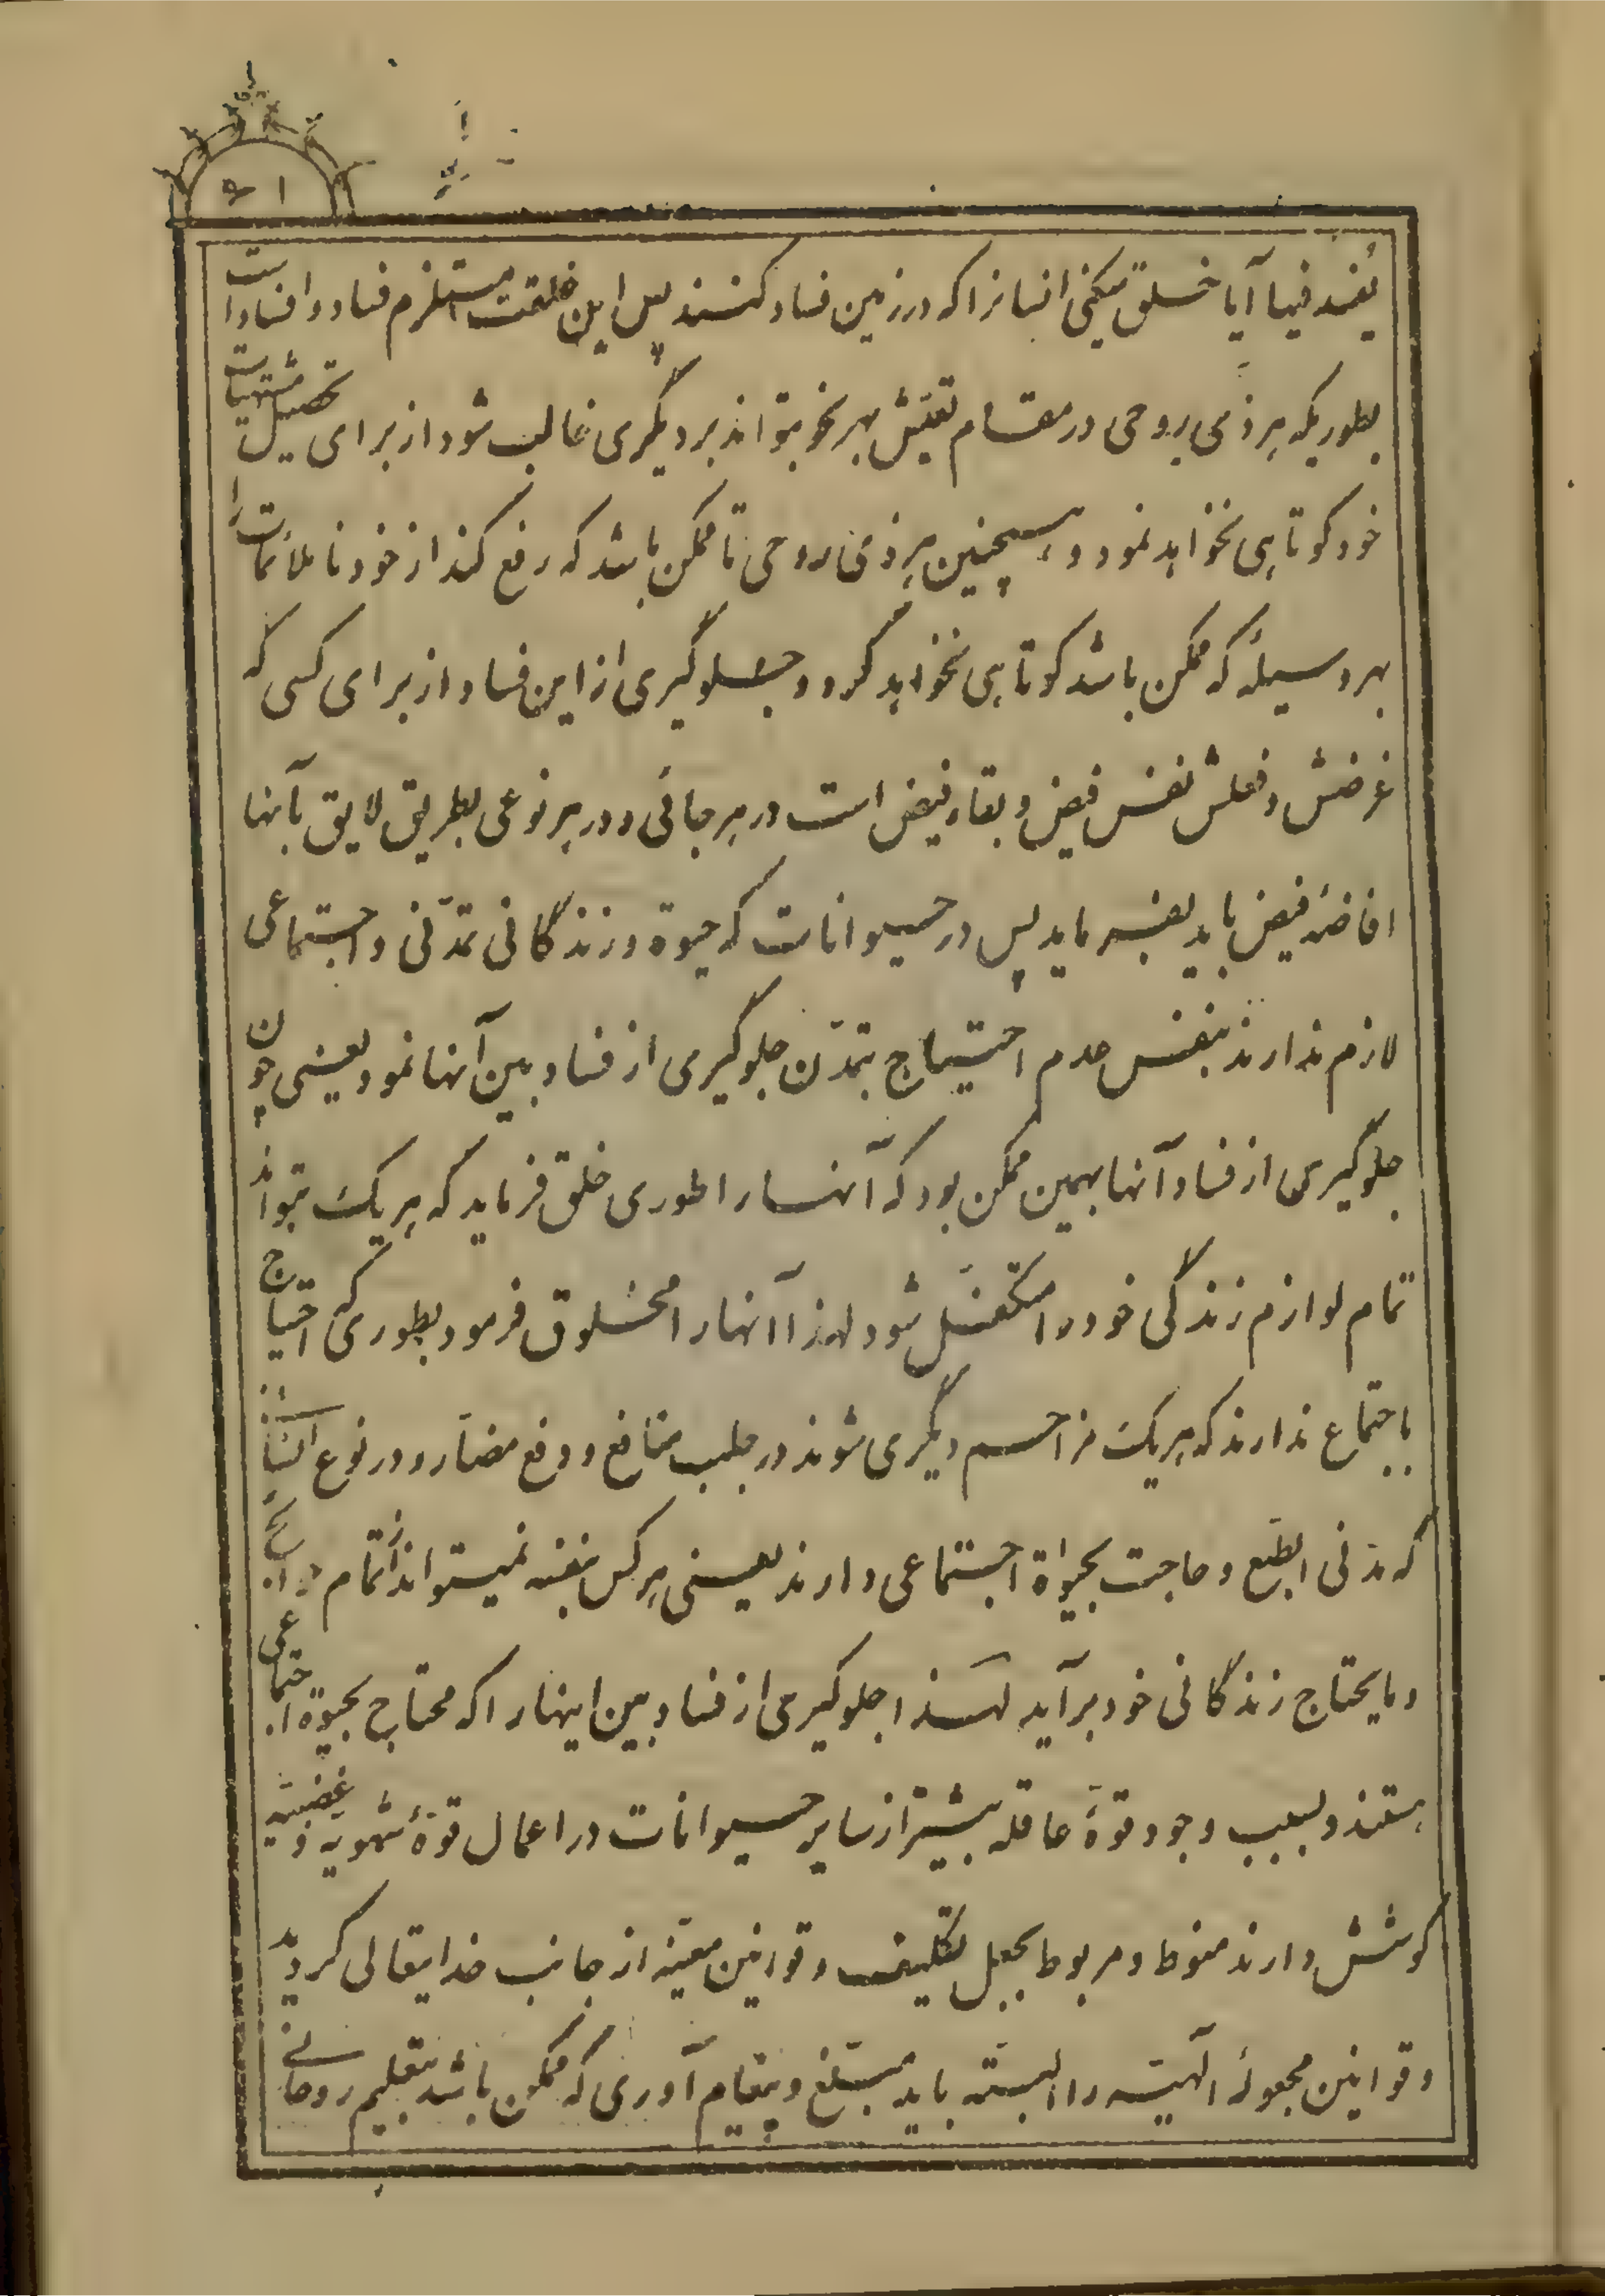 یفسد فیها آیا خلق میکنی انسانرا که در زمین فساد کنند پس این خلقت مستلزم فساد و افساد است
بطوریکه هر ذی روحی در مقام تعیّش بهر نحو بتواند بر دیگری غالب شود از برای تحصیل مشتهیات
خود کوتاهی نخواهد نمود و همچنین هر ذی روحی تا ممکن باشد که رفع کند از خود ناملائمات را
بهر وسیلهٔ که ممکن باشد کوتاهی نخواهد کرد و جلوگیری از این فساد از برای کسی که
غرضش و فعلش نفس فیض و بقاء فیض است در هر جائی و در هر نوعی بطریق لایق بآنها
افاضهٔ فیض باید بفرماید پس در حیوانات که حیوة و زندگانی تمدّنی و اجتماعی
لازم ندارند بنفس عدم احتیاج بتمدّن جلوگیری از فساد بین آنها نمود یعنی چون
جلوگیری از فساد آنها بهمین ممکن بود که آنها را طوری خلق فرماید که هر یک بتواند
تمام لوازم زندگی خود را متکفّل شود لهذا آنها را مخلوق فرمود بطوری که احتیاج
باجتماع ندارند که هر یک مزاحم دیگری شوند در جلب منافع و دفع مضارّ و در نوع انسان
که مدنی الطّبع و حاجت بحیواة اجتماعی دارند یعنی هر کس بنفسه نمیتواند از تمام
و مایحتاج زندگانی خود برآید لهذا جلوگیری از فساد بین اینها را که محتاج بحیوة اجتماعی
هستند و بسبب وجود قوّهٔ عاقله بیشتر از سایر حیوانات در اعمال قوّهٔ شهویه و غضبیّه
کوشش دارند منوط و مربوط بجعل تکلیف و قوانین معیّنه از جانب خدایتعالی گردید
و قوانین مجعولهٔ الهیّه را البتّه باید مبلّغ و پیغام آوری که ممکن باشد بتعلیم روحانی